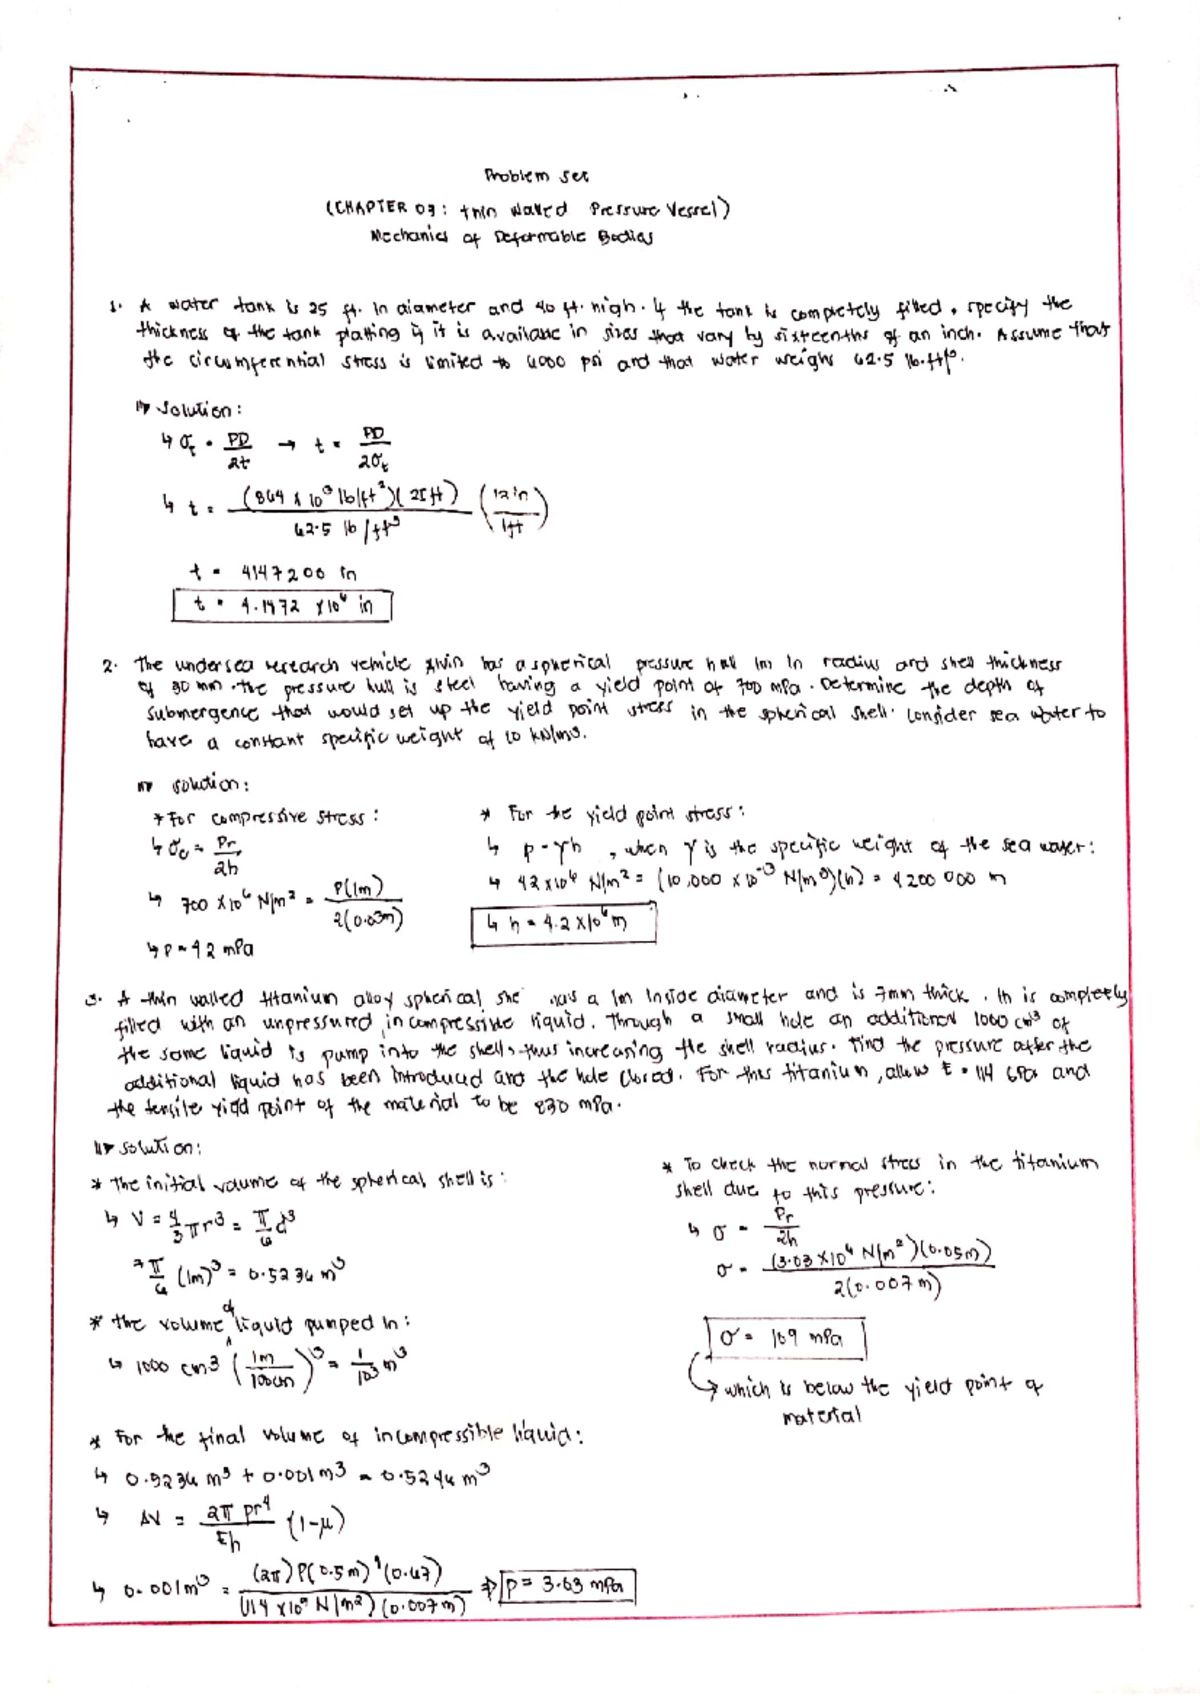 Problem Set
(CHAPTER 03: thin Walled Pressure Vessel)
Mechanics of Deformable Bodies
1. A water tank is 25 ft. In diameter and 40 ft. high. If the tank is completely filled, specify the
thickness of the tank platting if it is available in sizes that vary by sixteenths of an inch. Assume that
the circumferential stress is limited to 6000 psi and that water weighs 62.5 lb.ft³.
Solution:
↳ σt = PD/2t → t = PD/2σt
↳ t = (864 x 10³ lb/ft²)(25ft) / 62.5 lb/ft³ (12in/1ft)
t = 4147200 in
t = 4.1472 x10⁶ in
2. The undersea research vehicle Alvin has a spherical pressure hull 1m In radius and shell thickness
of 30 mm. The pressure hull is steel having a yield point of 700 mPa. Determine the depth of
submergence that would set up the yield point stress in the spherical shell. Consider sea water to
have a constant specific weight of 10 kN/m3.
solution:
* For compressive stress:
↳ σc = Pr/2h
↳ 700 x10⁶ N/m² = P(1m) / 2(0.03m)
↳ P = 42 mPa
* For the yield point stress:
↳ p = γh , when γ is the specific weight of the sea water:
↳ 42x10⁶ N/m² = (10,000 x 10⁻³ N/m³)(h) = 4200 000 m
↳ h = 4.2 x10⁶ m
3. A thin walled titanium alloy spherical she has a 1m Inside diameter and is 7mm thick. Ih is completely
filled with an unpressured, incompressible liquid. Through a small hole an additional 1000 cm³ of
the same liquid is pump into the shell, thus increasing the shell radius. Find the pressure after the
additional liquid has been introduced and the hole closed. For this titanium, allow E = 114 GPa and
the tensile yield point of the material to be 830 mPa.
Solution:
* The initial volume of the spherical shell is:
↳ V = 4/3 πr³ = π/6 d³
= π/6 (1m)³ = 0.5236 m³
* the volume of liquid pumped In:
↳ 1000 cm3 (1m/100cm)³ = 1/10³ m³
* For the final volume of incompressible liquid:
↳ 0.5236 m³ + 0.001 m3 = 0.5246 m³
↳ ΔV = 2π pr⁴/Eh (1-μ)
↳ 0.001m³ = (2π)P(0.5m)⁴(0.67) / (114 x10⁹ N/m²)(0.007m) ⇒ P = 3.63 mPa
* To check the normal stress in the titanium
shell due to this pressure:
↳ σ = Pr/2h
σ = (3.03 x10⁶ N/m²)(0.05m) / 2(0.007m)
σ = 109 mPa
which is below the yield point of
material